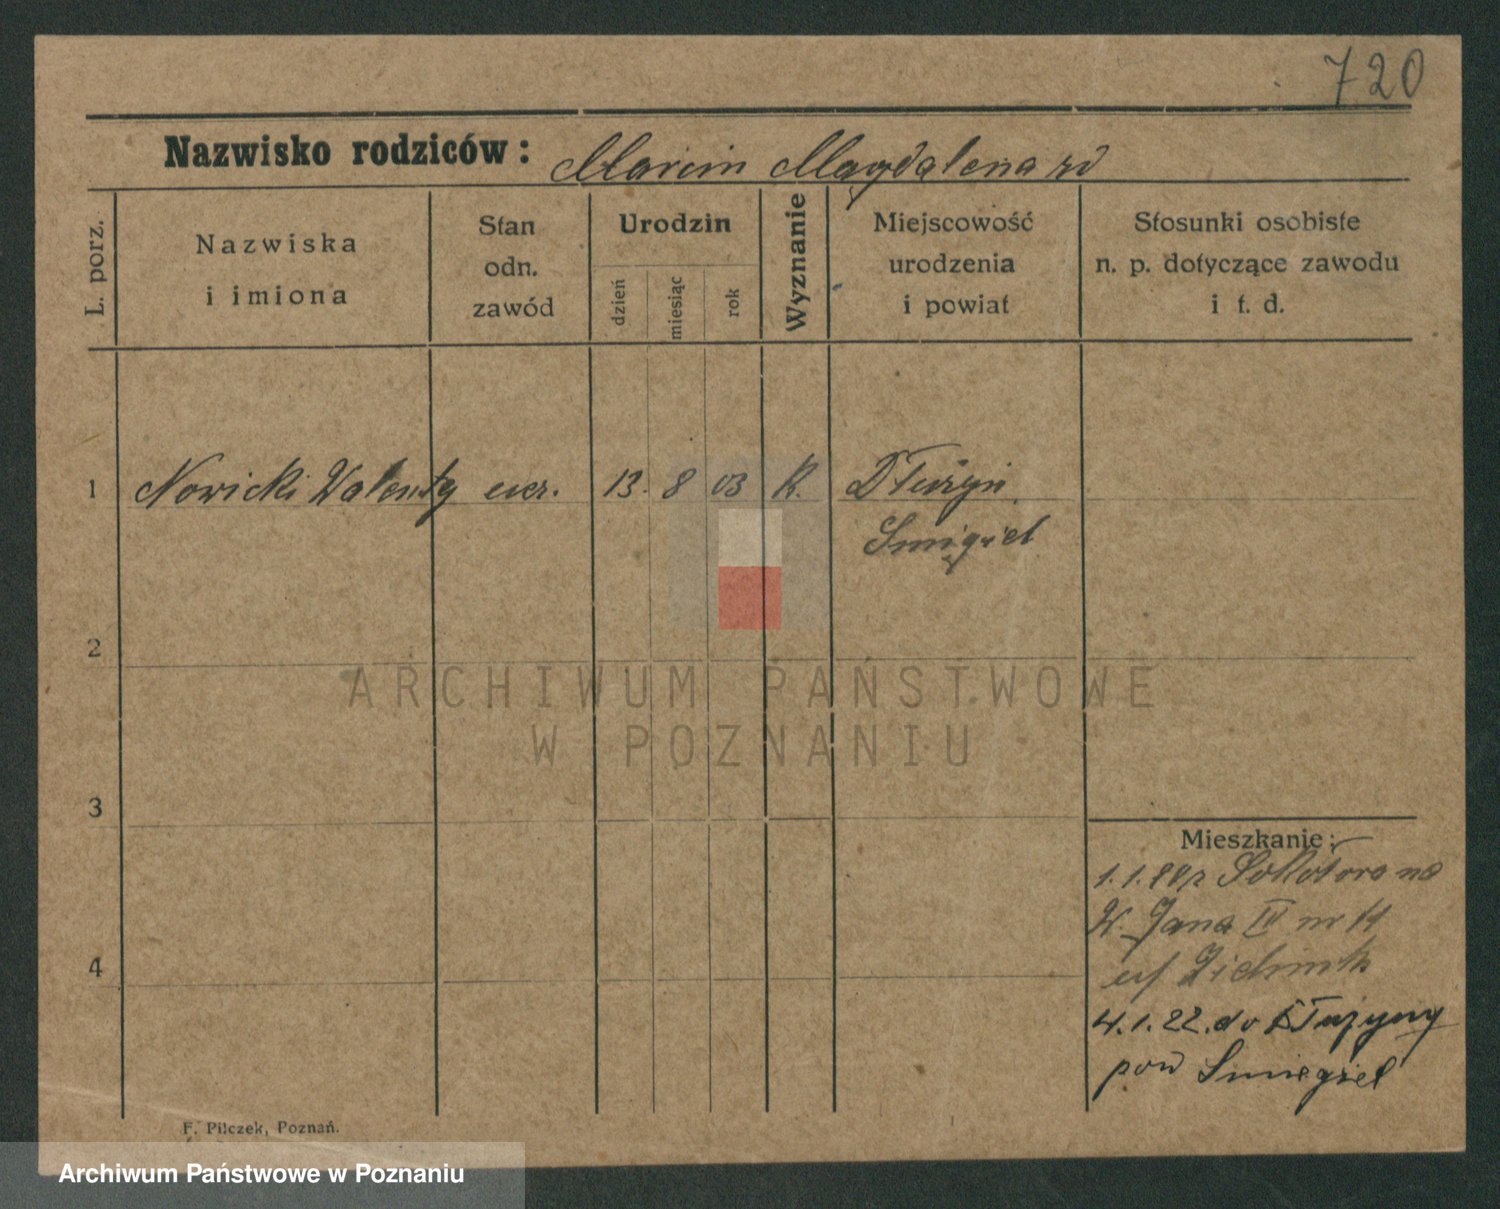 720
Nazwisko rodziców: Marcin Magdalena
L. porz.
Nazwiska
i imiona
Stan
odn.
zawód
Urodzin
dzień
miesiąc
rok
Wyznanie
Miejscowość
urodzenia
i powiat
Stosunki osobiste
n. p. dotyczące zawodu
i t. d.
1 Nowicki Walenty ucz. 13. 8 03 K. Dłużyn
Śmigiel
2
ARCHIWUM PAŃSTWOWE
W POZNANIU
3
Mieszkanie:
1.1.
W. Jana III nr 14
4
4.1.22. do Dłużyny
pow Śmigiel
F. Pilczek, Poznań.
Archiwum Państwowe w Poznaniu